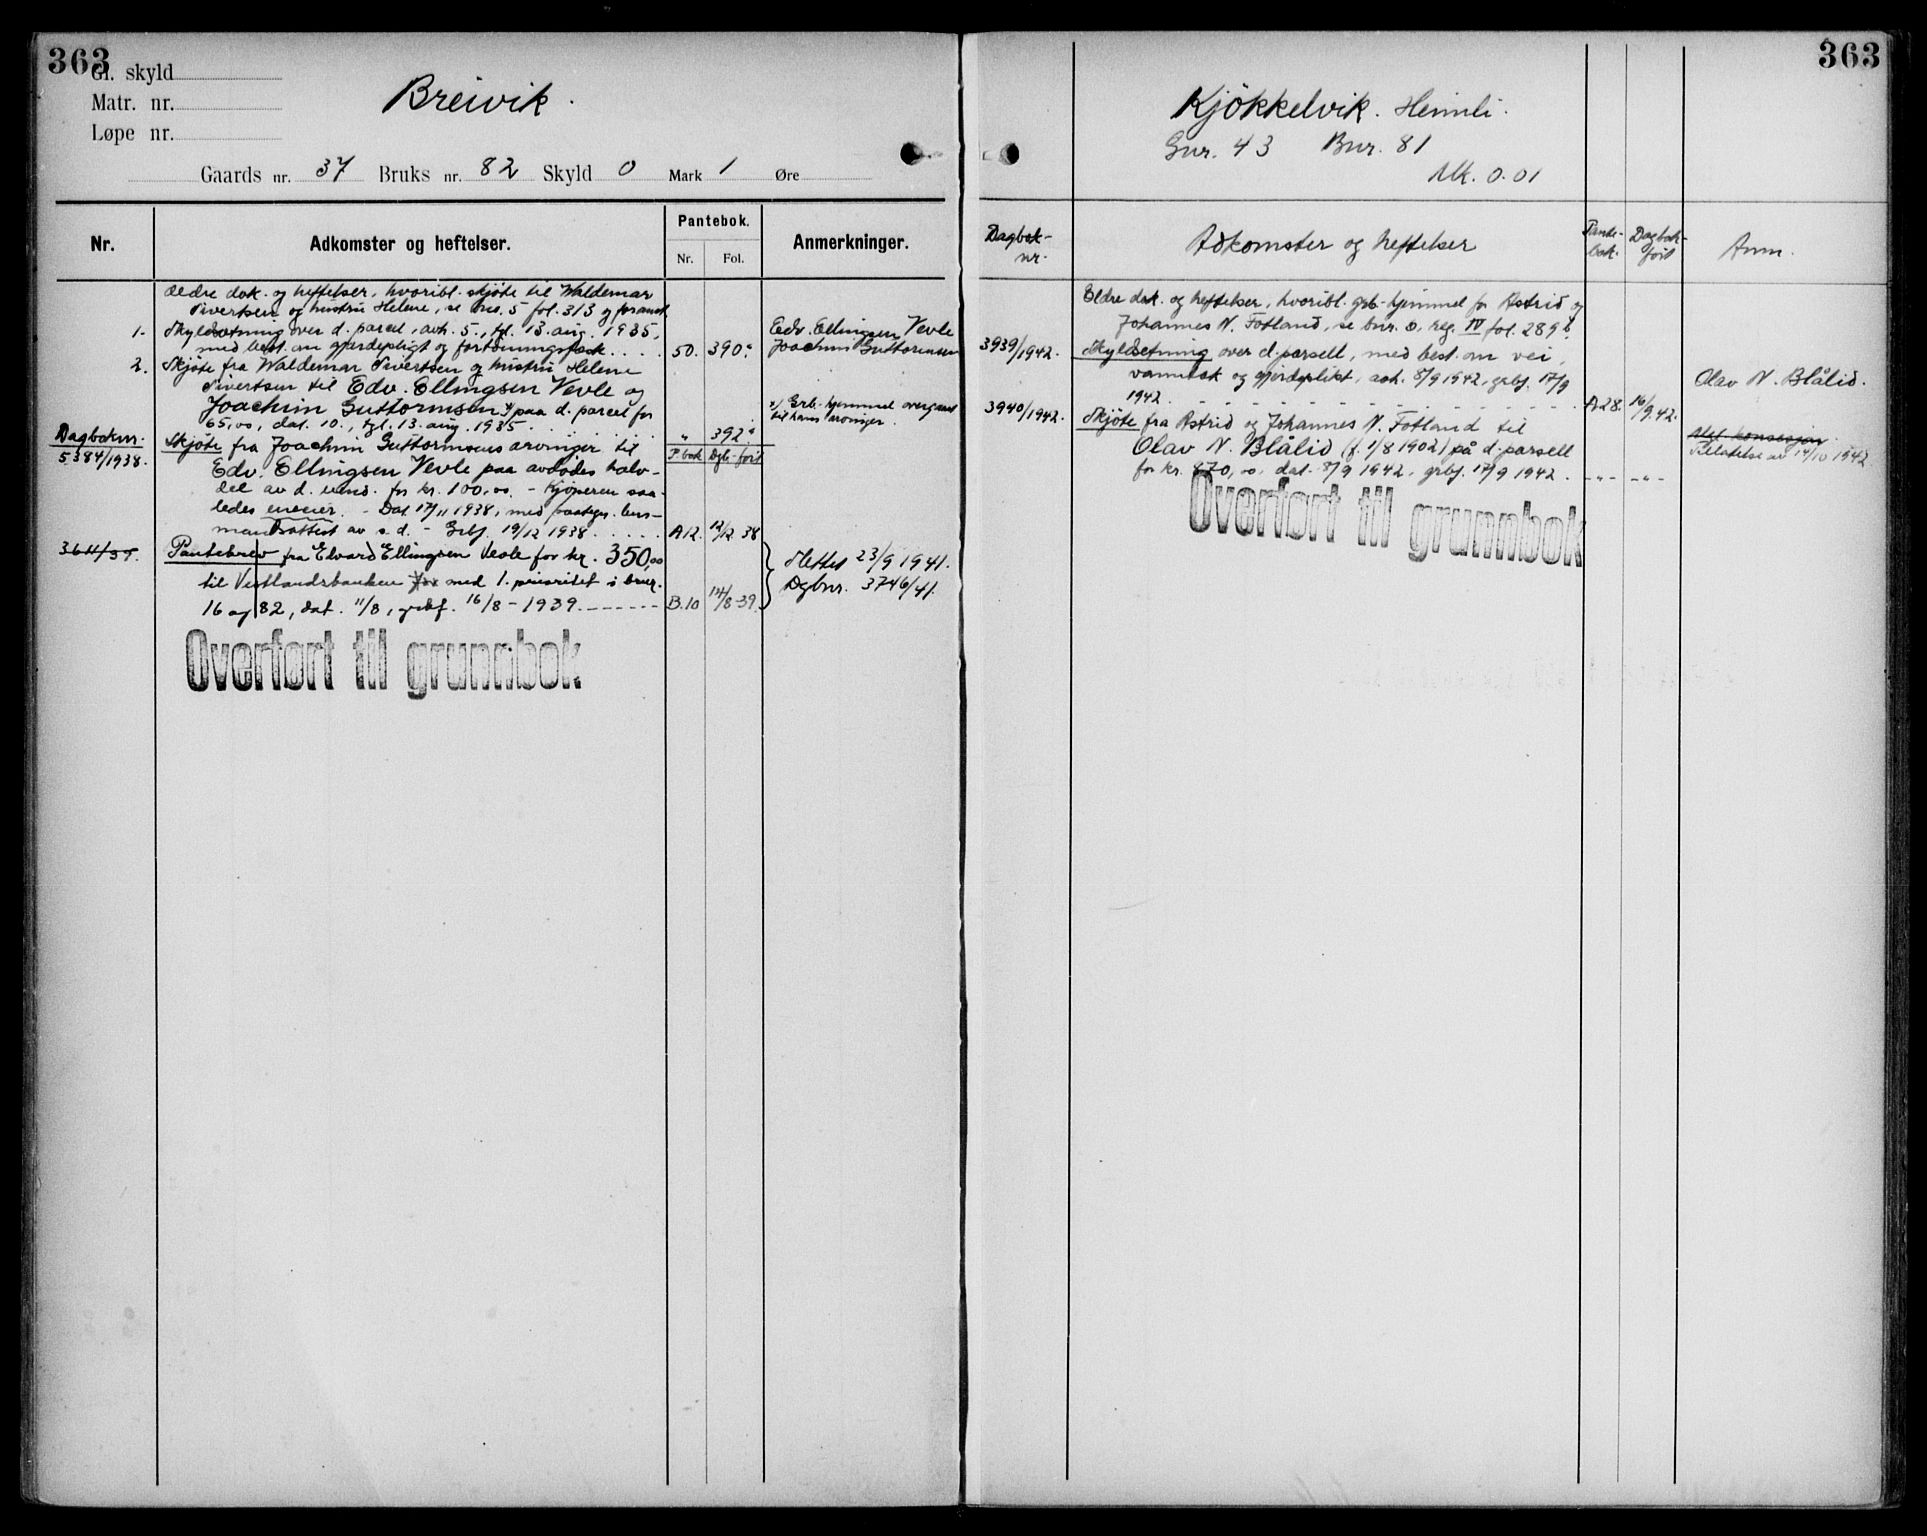 363
Gl. skyld
Matr. nr.
Løpe nr.
Breivik.
Gaards nr. 37 Bruks nr. 82 Skyld 0 Mark 1 Øre
Nr.
Adkomster og heftelser.
Pantebok.
Nr. Fol.
Anmerkninger.
Ældre dok. og heftelser, hvoribl. skjøte til Waldemar
Sivertsen og hustru Helene, se bns. 5 fol. 313 g foranst.
1. Skyldsetning over d. parcel, avh. 5., tgl. 13. aug. 1935, Edv. Ellingsen Vevle
med best. om gjerdepligt og fortøiningsfæste . . . . 50. 390. Joachim Guttormsen
2. Skjøte fra Waldemar Sivertsen og hustru Helene
Sivertsen til Edv. Ellingsen Vevle og
Joachim Guttormsen x/ paa d. parcel for x/ Grb.-hjemmel overgaaet
65,00, dat. 10., tgl. 13. aug. 1935 . . . . " 392. til hans arvinger.
Dagboknr. P.bok Dgb.-ført
5384/1938. Skjøte fra Joachim Guttormsens arvinger til
Edv. Ellingsen Vevle paa avdødes halv-
del av d. eiend. for kr. 100,00. - Kjøperen saa-
ledes eneeier. - Dat. 17/11 1938, med paategn. lens-
mandsattest av s. d. - Grbf. 19/12 1938 . . . . . A12. 12/12 38
3611/39. Pantebrev fra Edvard Ellingsen Vevle for kr. 350,00
til Vestlandsbanken for med 1. prioritet i bnr.
16 og 82, dat. 11/8, grbf. 16/8 - 1939. - - - - - - B.10 14/8-39.
Slettet 23/9 1941.
Dgbnr. 3746/41.
Overført til grunnbok
363
Kjøkkelvik. Heimli.
Gnr. 43 Bnr. 81
Mk. 0.01
Dagbok-
nr.
Adkomster og heftelser
Pante-
bok.
Dagbok-
ført
Anm.
Eldre dok. og heftelser, hvoribl. grb.-hjemmel for Astrid og
Johannes N. Fotland, se bnr. 8, reg. IV fol. 289 b
3939/1942. Skyldsetning over d. parsell, med best. om vei,
vanntak og gjerdeplikt, avh. 8/9 1942, grbf. 17/9
1942. - - - - - - - - - A28. 16/9 42. Olav N. Blålid.
3940/1942. Skjøte fra Astrid og Johannes N. Fotland til
Olav N. Blålid (f. 1/8 1902) på d. parsell
for kr. 870,00, dat. 8/9 1942, grbf. 17/9 1942. - "- - "-
Mgl. konsesjon.
Tillatelse av 14/10 1942
Overført til grunnbok